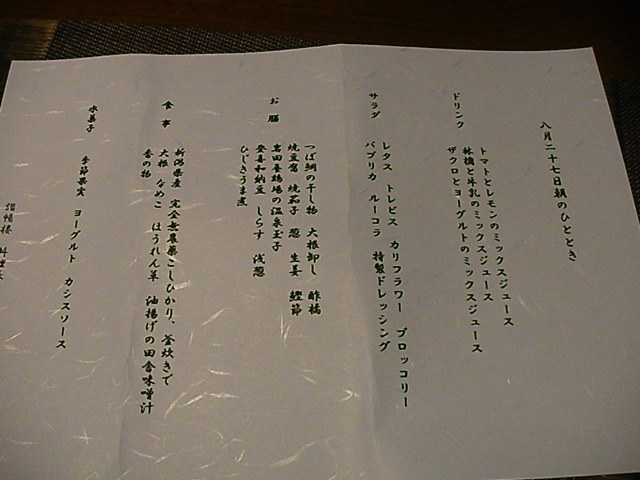 八月二十七日朝のひととき
ドリンク
トマトとレモンのミックスジュース
林檎と牛乳のミックスジュース
ザクロとヨーグルトのミックスジュース
サラダ
レタス トレビス カリフラワー ブロッコリー
パプリカ ルーコラ 特製ドレッシング
お膳
つぼ鯛の干し物 大根卸し 酢橘
焼豆腐 焼茄子 葱 生姜 鰹節
宮田養鶏場の温泉玉子
登喜和納豆 しらす 浅葱
ひじきうま煮
食事
新潟県産 完全無農薬こしひかり、釜炊きで
大根 なめこ ほうれん草 油揚げの田舎味噌汁
香の物
水菓子
季節果実 ヨーグルト カシスソース